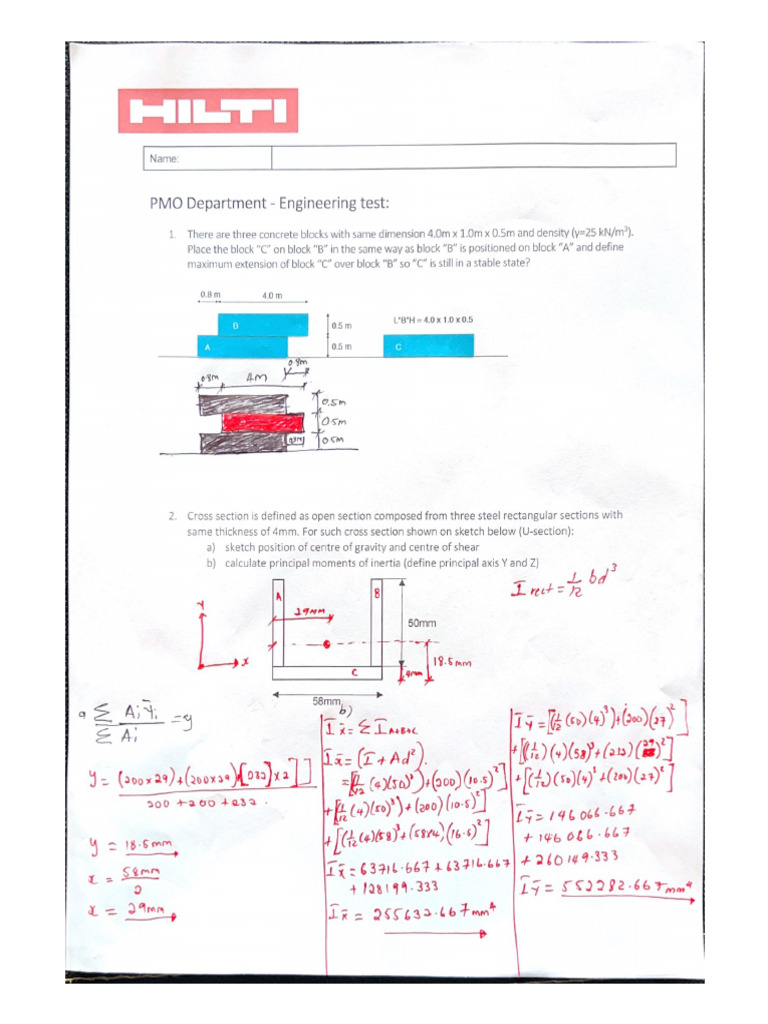 HILTI
Name:
PMO Department - Engineering test:
1. There are three concrete blocks with same dimension 4.0m x 1.0m x 0.5m and density (γ=25 kN/m³).
Place the block "C" on block "B" in the same way as block "B" is positioned on block "A" and define
maximum extension of block "C" over block "B" so "C" is still in a stable state?
0.8 m 4.0 m
B 0.5 m L*B*H = 4.0 x 1.0 x 0.5
A 0.5 m C
0.8m
0.8m 4M
0.5m
0.5m
0.5m
2. Cross section is defined as open section composed from three steel rectangular sections with
same thickness of 4mm. For such cross section shown on sketch below (U-section):
a) sketch position of centre of gravity and centre of shear
b) calculate principal moments of inertia (define principal axis Y and Z)
I rect = 1/12 bd³
A B
29mm
Y
50mm
X
18.5mm
C 4mm
58mm
a ΣAiȲi / ΣAi = y
y = (200x29)+(200x29)+[232]x2]]
200 + 200 + 232.
y = 18.5mm
x = 58mm / 2
x = 29mm
b)
I x̄ = Σ I A+B+C
I x̄ = (Ī + Ad²).
= [1/12 (4)(50)³) + (200)(10.5)²]
+ [1/12 (4)(50)³) + (200)(10.5)²]
+ [(1/12 (4)(58)³ + (58x4)(16.5)²]
I x̄ = 63716.667 + 63716.667
+ 128199.333
I x̄ = 255632.667 mm⁴
I ȳ = [(1/12 (50)(4)³) + (200)(27)²]
+ [(1/12)(4)(58)³ + (232)(29)²]
+ [(1/12)(50)(4)³ + (200)(27)²]
I ȳ = 146066.667
+ 146066.667
+ 260149.333
I ȳ = 552282.667 mm⁴